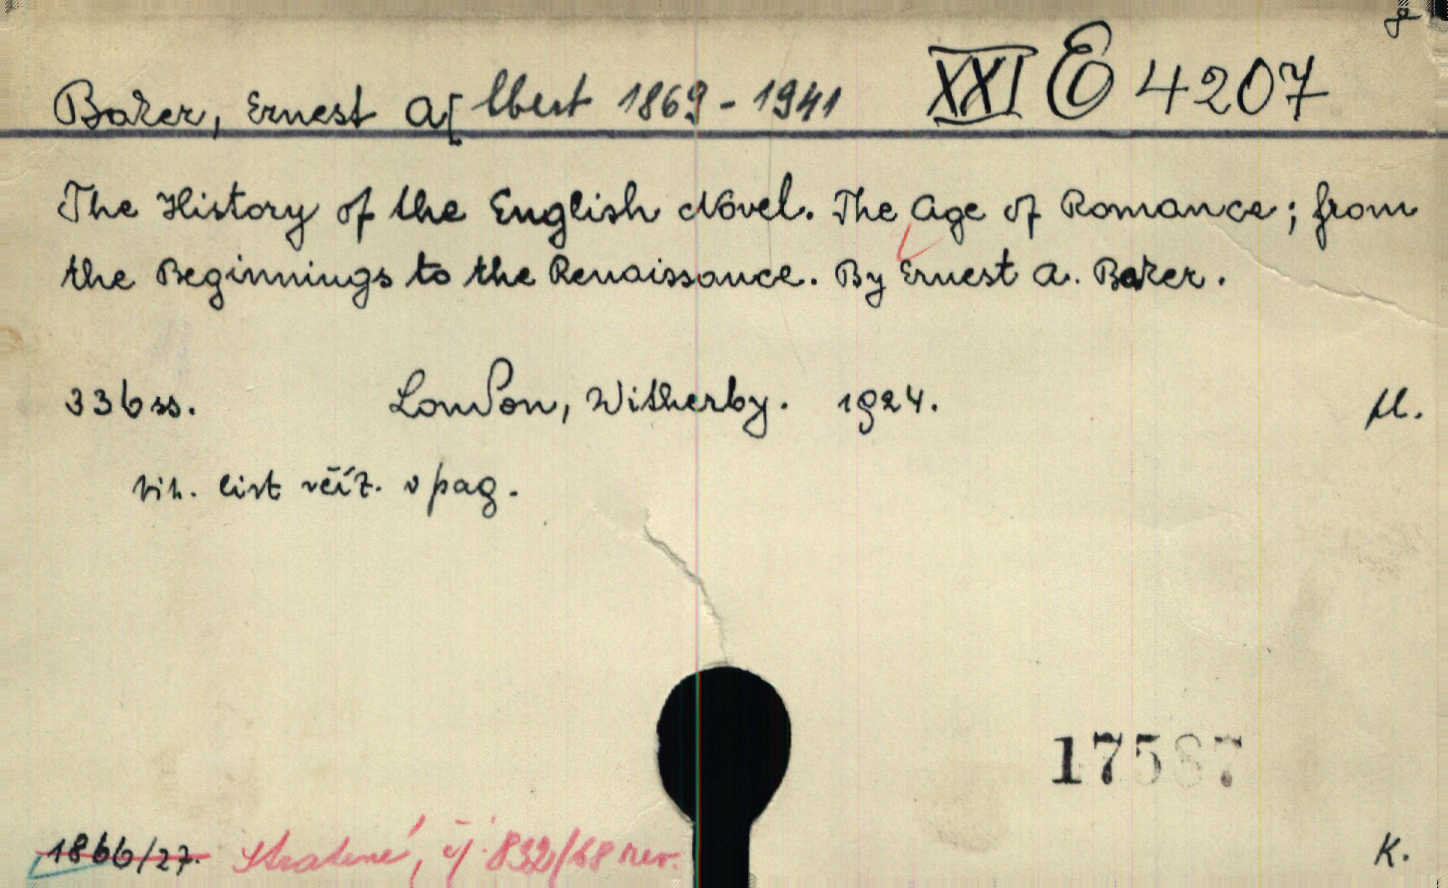 Baker, Ernest A[lbert 1869-1941 XXI E 4207
The History of the English Novel. The Age of Romance; from
the Beginnings to the Renaissance. By Ernest A. Baker.
336 ss. London, Witherby. 1924.
tit. list včít. v pag.
17587
1866/27. Stratené, čj. 832/68 rev. K.